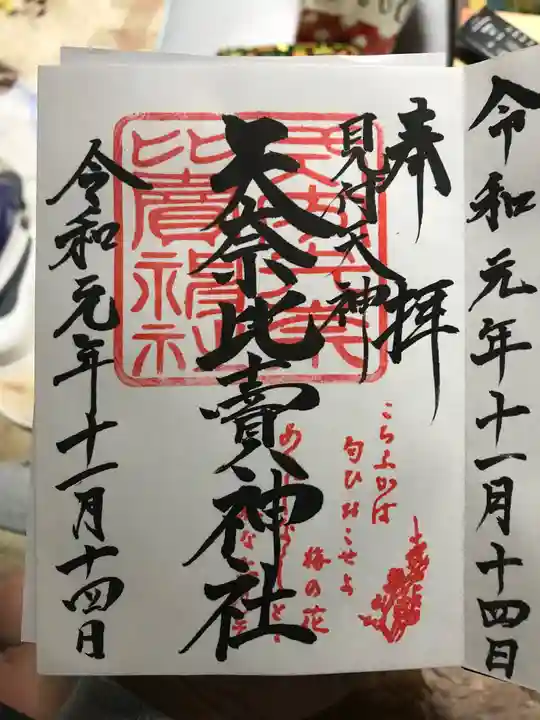 令和元年十一月十四日
奉拝
見付天神
矢奈比賣神社
令和元年十一月十四日
比賣神社
こちふかば
匂ひおこせよ
梅の花